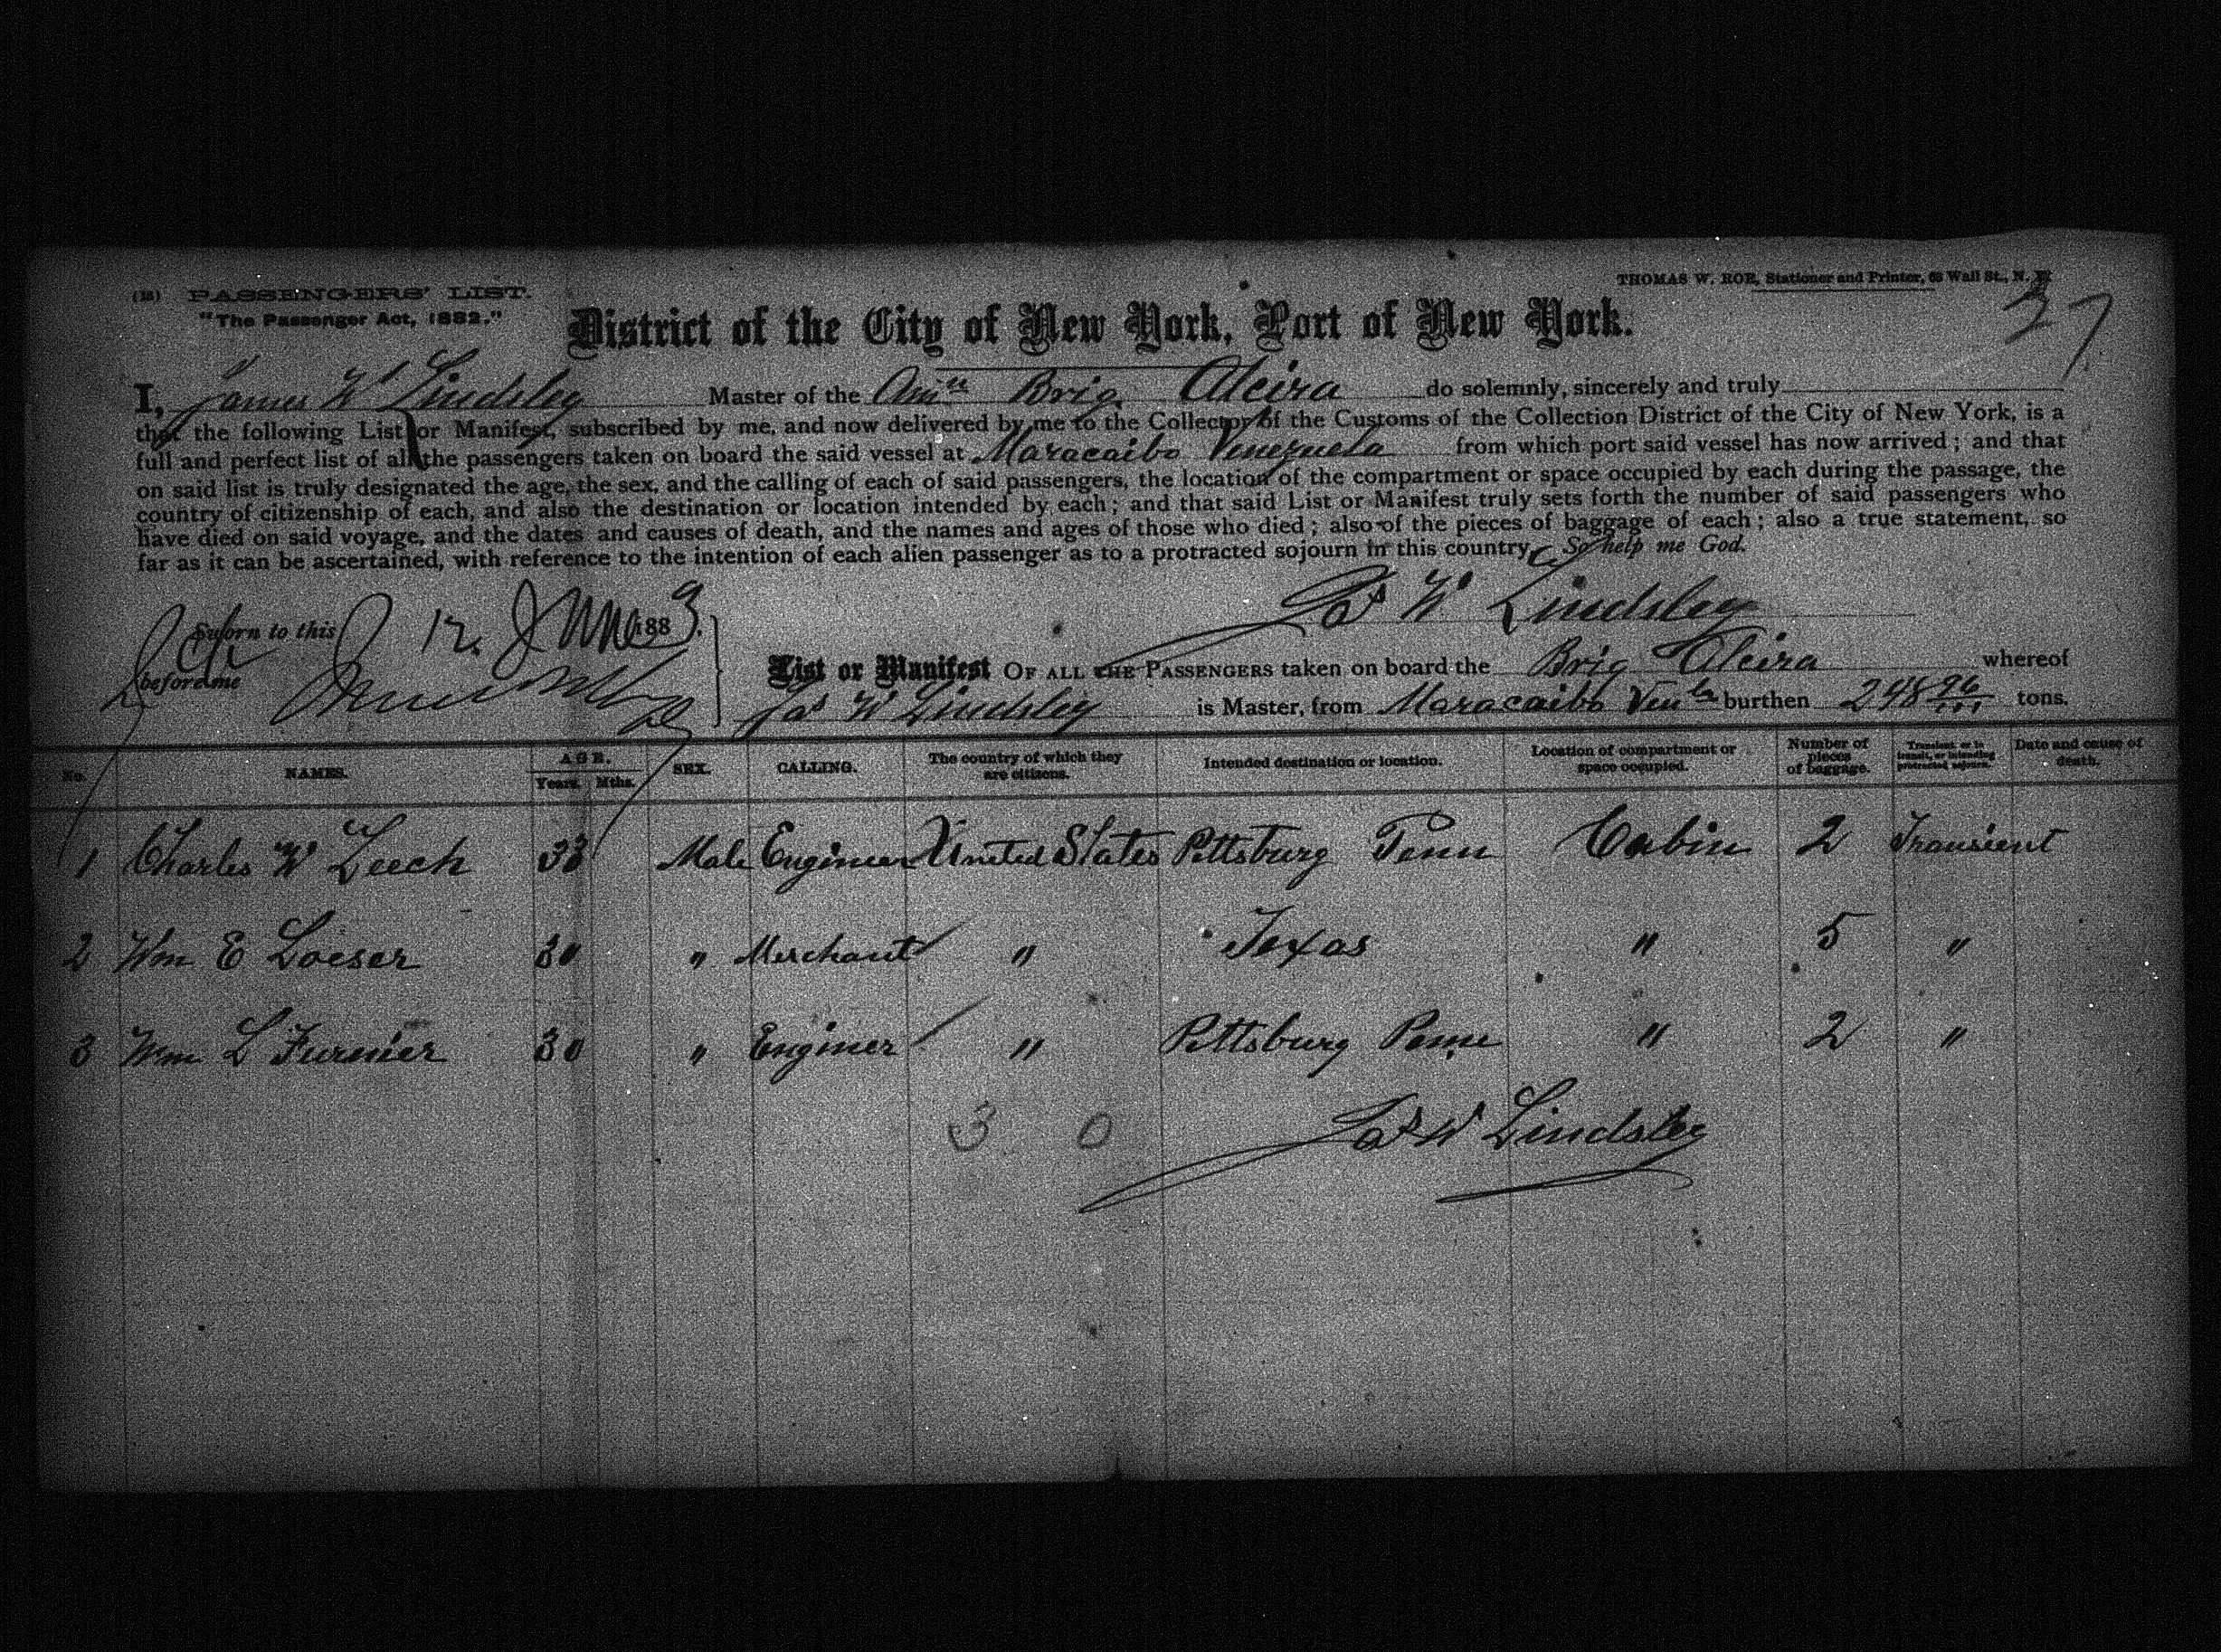 (18) PASSENGERS' LIST.
"The Passenger Act, 1882."
THOMAS W. ROE, Stationer and Printer, 68 Wall St., N. Y.
37
District of the City of New York, Port of New York.
I, James W Lindsley Master of the Amn Brig Alcira do solemnly, sincerely and truly
that the following List or Manifest, subscribed by me, and now delivered by me to the Collector of the Customs of the Collection District of the City of New York, is a
full and perfect list of all the passengers taken on board the said vessel at Maracaibo Venezuela from which port said vessel has now arrived; and that
on said list is truly designated the age, the sex, and the calling of each of said passengers, the location of the compartment or space occupied by each during the passage, the
country of citizenship of each, and also the destination or location intended by each; and that said List or Manifest truly sets forth the number of said passengers who
have died on said voyage, and the dates and causes of death, and the names and ages of those who died; also of the pieces of baggage of each; also a true statement, so
far as it can be ascertained, with reference to the intention of each alien passenger as to a protracted sojourn in this country. So help me God.
Jas W Lindsley
Sworn to this 12. June 1883.
before me
List or Manifest OF ALL THE PASSENGERS taken on board the Brig Alcira whereof
Jas W Lindsley is Master, from Maracaibo Venla burthen 248 96/100 tons.
No. NAMES. AGE. Years. Mths. SEX. CALLING. The country of which they are citizens. Intended destination or location. Location of compartment or space occupied. Number of pieces of baggage. Transient or in transit, or intending protracted sojourn. Date and cause of death.
1 Charles W Leech 33 Male Engineer United States Pittsburg Penn Cabin 2 Transient
2 Wm E Loeser 30 " Merchant " Texas " 5 "
3 Wm L Furnier 30 " Enginer " Pittsburg Penn " 2 "
3 0
Jas W Lindsley